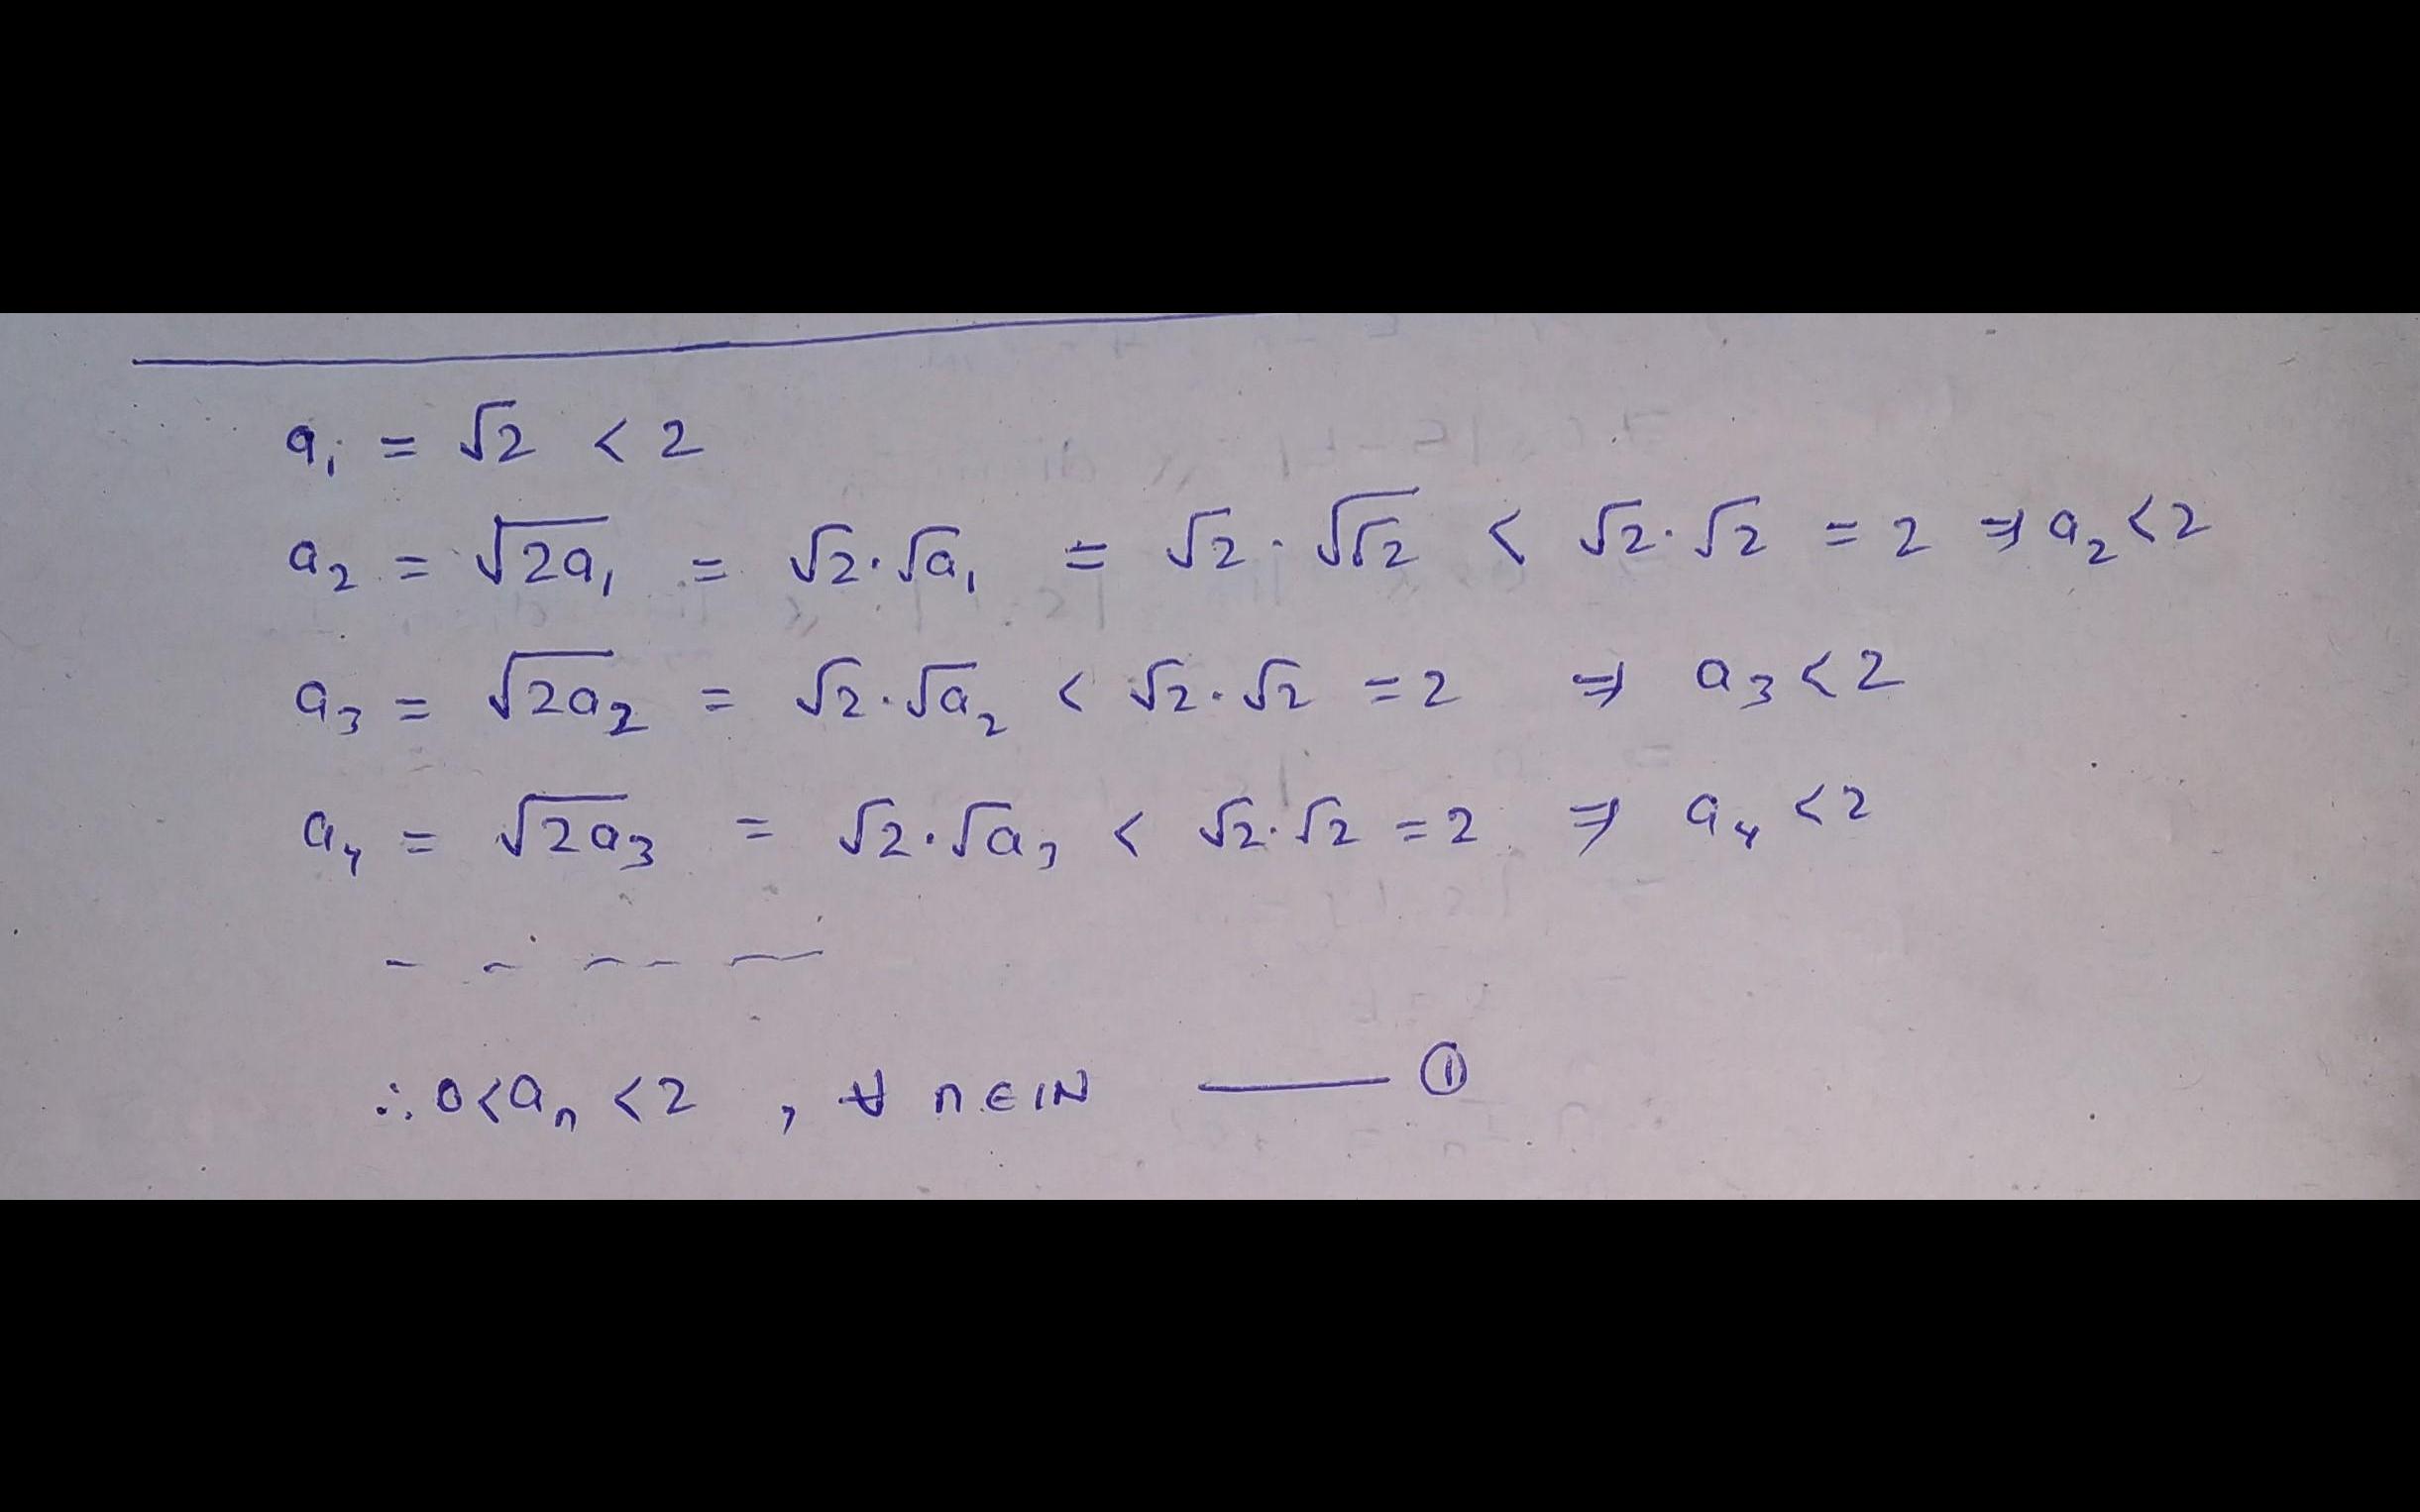 a₁ = √2 < 2
a₂ = √(2a₁) = √2·√a₁ = √2·√√2 < √2·√2 = 2 ⇒ a₂ < 2
a₃ = √(2a₂) = √2·√a₂ < √2·√2 = 2 ⇒ a₃ < 2
a₄ = √(2a₃) = √2·√a₃ < √2·√2 = 2 ⇒ a₄ < 2
- - - - —
∴ 0 < aₙ < 2 , ∀ n ∈ ℕ —— ①